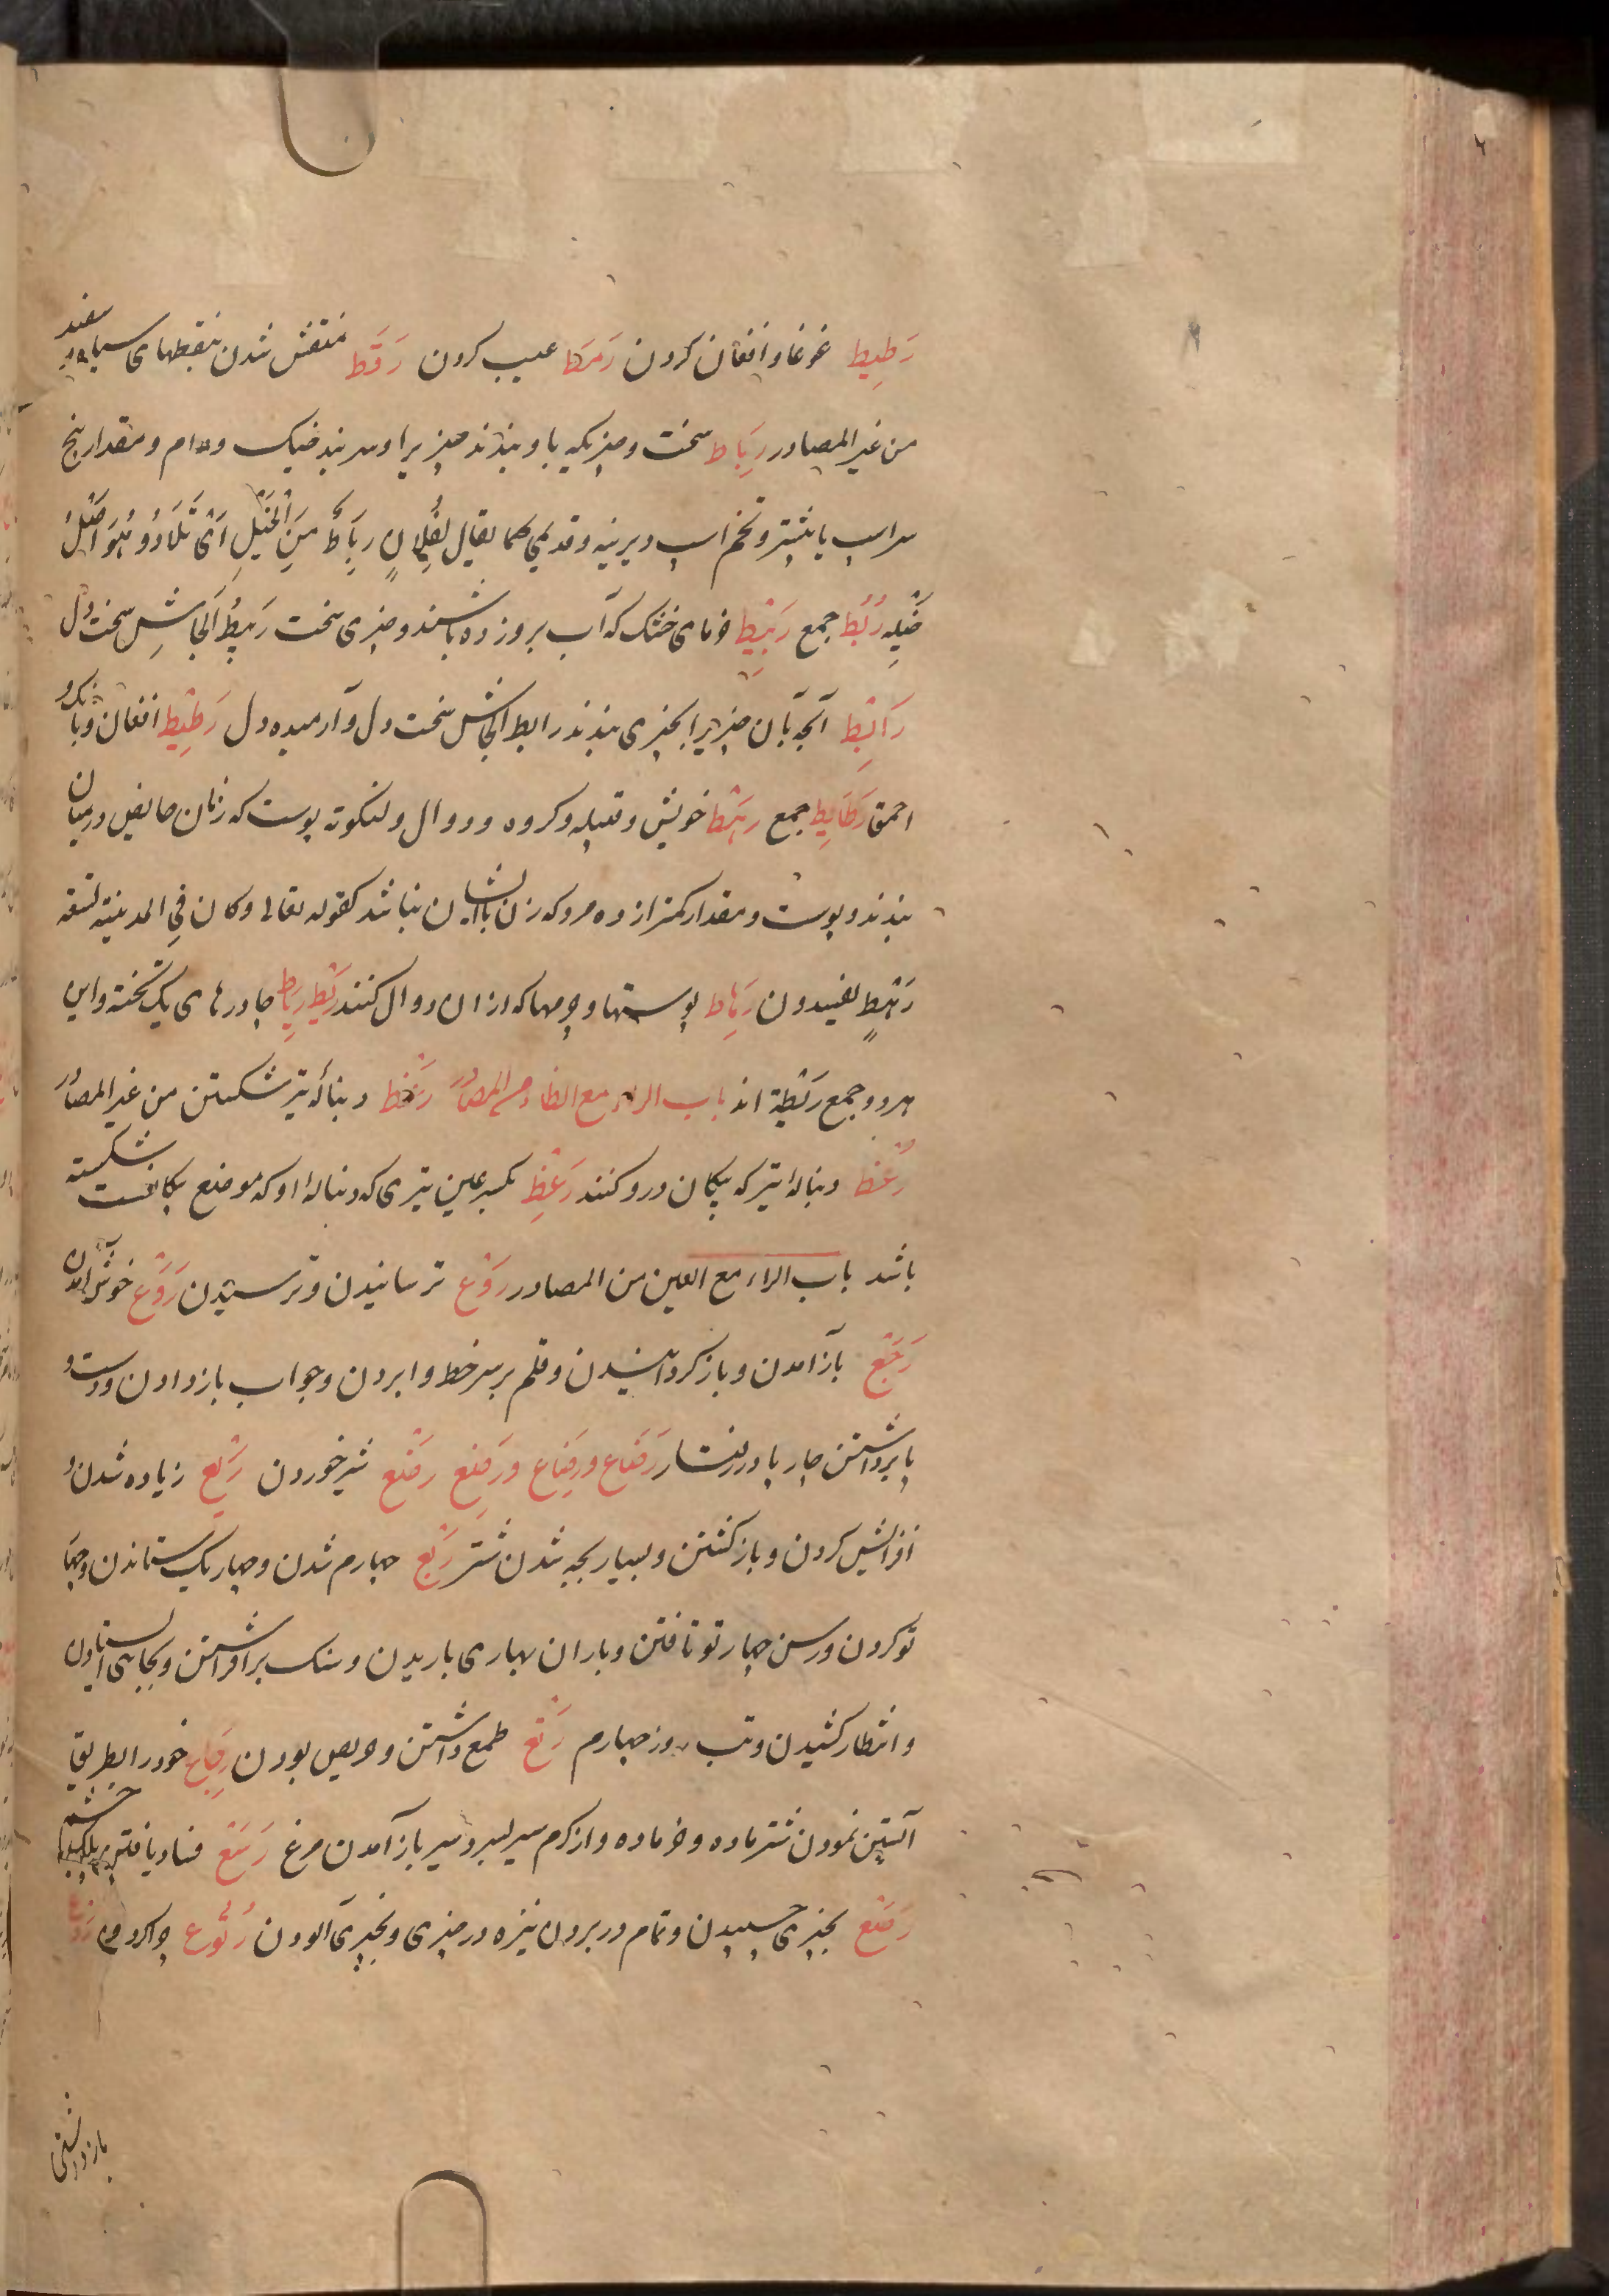 رَطِیط غوغا و افغان کردن رَمَط عیب کردن رَقَط منقش شدن بنقطهای سیاه و سفید
من غیر المصادر رِبَاط سخت و چیزیکه باو بندند چیزیرا و سربند خیک و دام و مقدار پنج
سراسپ یا بیشتر و تخم اسپ دیرینه و قدیمی کما یقال لِفُلانٍ رِبَاطٌ مِنَ الْخَیْلِ اَیْ تِلَادٌ وَهُوَ اَصْلُ
خَیْلِه رُبُط جمع رَبِیط خرمای خشک که آب برو زده باشند و چیزی سخت رَبِیطُ الْجَاشِ سخت دل
رَابِط آنچه بآن چیزیرا بچیزی بندند رابط الجاش سخت دل و آرمیده دل رَطِیط افغان و بانک و
احمق رَطَایِط جمع رَهْط خویش و قبیله و کروه و دوال و لنکوته پوست که زنان حایض در میان
بندند و پوست و مقدار کمتر از ده مرد که زن با ایشان نباشد کقوله تعالی وکان فِی المدینة تسعة
رَهْطٍ یفسدون رِهَاط پوستها و چرمها که ازان دوال کنند رَیْط رِیَاط چادرهای یک تخته و این
هر دو جمع رَیْطَة اند باب الراء مع الظاء من المصادر رَعْظ دنبالۀ تیر شکستن من غیر المصادر
رُعْظ دنباله تیر که پیکان درو کنند رَعِظ بکسر عین تیری که دنباله او که موضع پیکانست شکسته
باشد باب الراء مع العین من المصادر رَوْع ترسانیدن و ترسیدن رَوَع خوش آمدن
رَجْع باز آمدن و باز کردانیدن و قلم بر سر خط وا بردن و جواب باز دادن و دست و
پا برداشتن چارپا در رفتار رَضَاع و رِضَاع و رَضِع رَضْع شیر خوردن رَیْع زیاده شدن و
افزایش کردن و باز کشتن و بسیار بچه شدن شتر رَبْع چهارم شدن و چهاریک ستاندن و چهار
تو کردن و رسن چهار تو تافتن و باران بهاری باریدن و سنک برافراشتن و بجایی ایستادن
و انتظار کشیدن و تب روز چهارم رَثَع طمع داشتن و حریص بودن رِجَاع خود را بطریق
آبستن نمودن شتر ماده و خر ماده و از کرم سیر بسرد سیر باز آمدن مرغ رَسَع فساد یافتن پلک چشم
رَصَع بچیزی چسپیدن و تمام در بردن نیزه در چیزی و بچیزی آلودن رُتُوع چرا کردن
باز داشتن